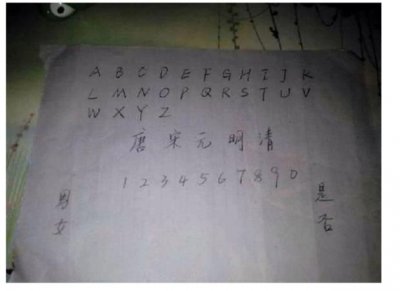 A B C D E F G H I J K
L M N O P Q R S T U V
W X Y Z
唐 宋 元 明 清
1 2 3 4 5 6 7 8 9 0
男
女
是
否